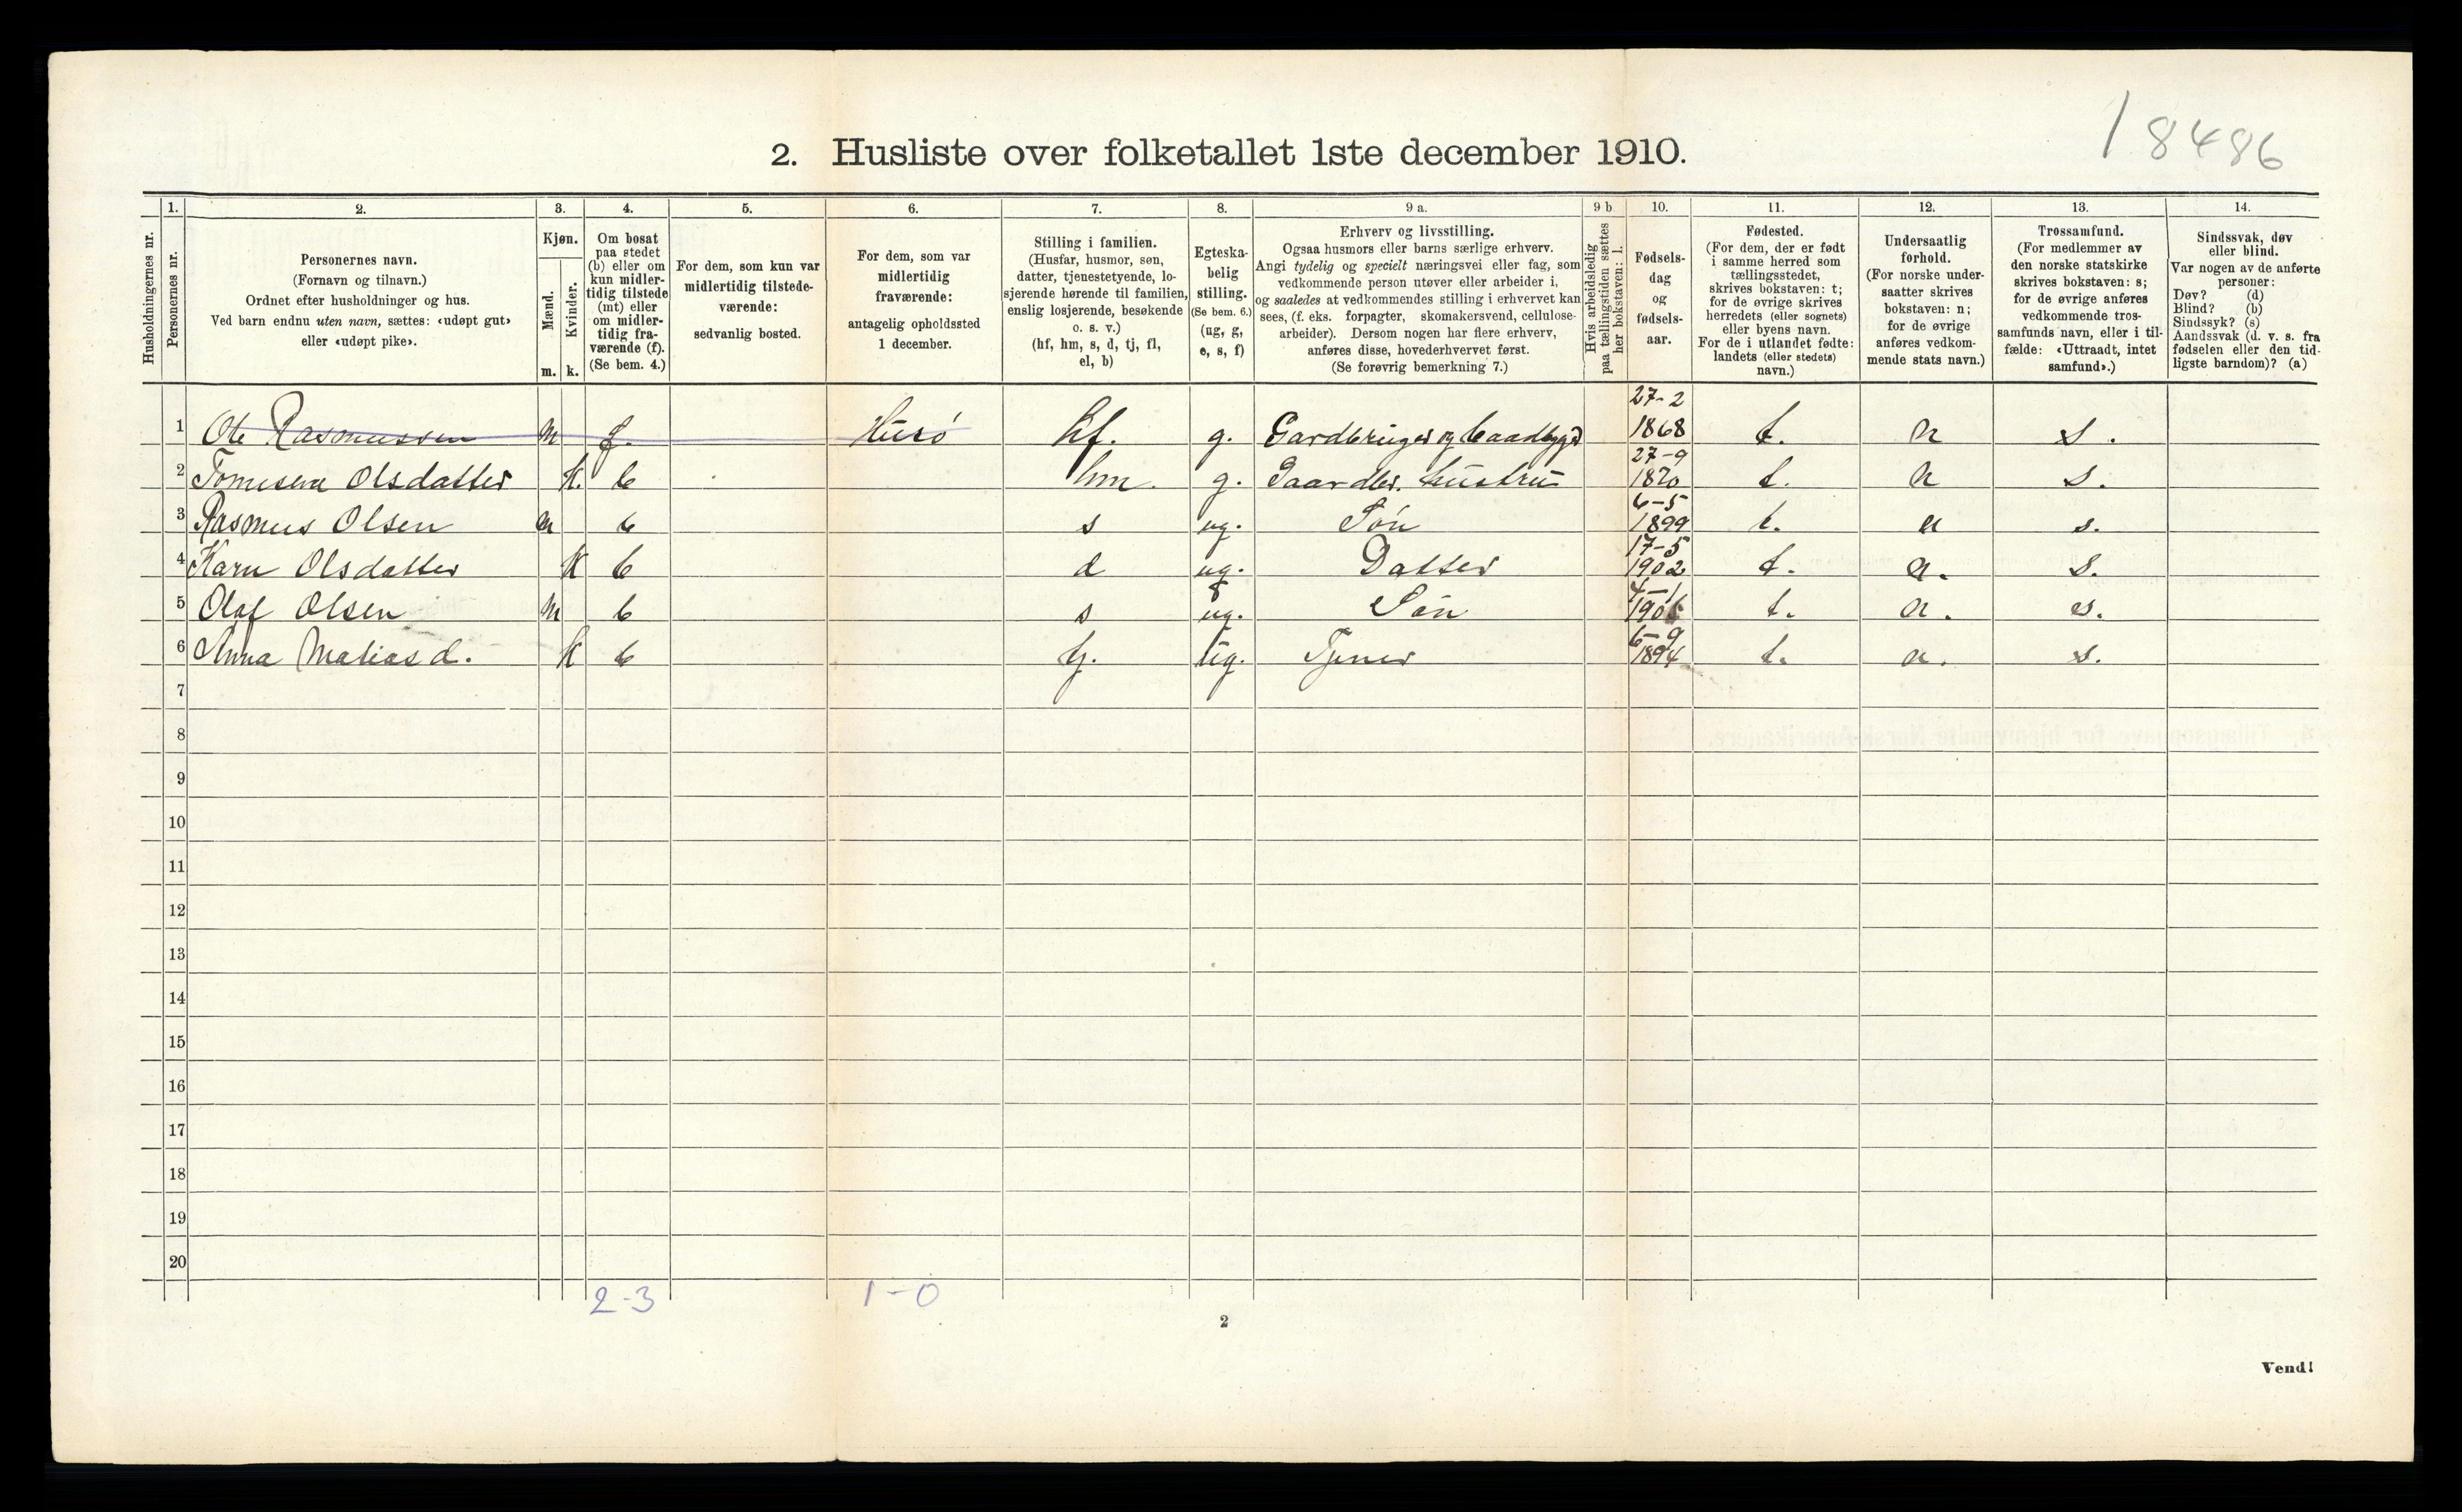 18486
2. Husliste over folketallet 1ste december 1910.
Husholdningernes nr.
1.
Personernes nr.
2.
Personernes navn.
(Fornavn og tilnavn.)
Ordnet efter husholdninger og hus.
Ved barn endnu uten navn, sættes: «udøpt gut»
eller «udøpt pike».
3.
Kjøn.
Mænd.
m.
Kvinder.
k.
4.
Om bosat
paa stedet
(b) eller om
kun midler-
tidig tilstede
(mt) eller
om midler-
tidig fra-
værende (f).
(Se bem. 4.)
5.
For dem, som kun var
midlertidig tilstede-
værende:
sedvanlig bosted.
6.
For dem, som var
midlertidig
fraværende:
antagelig opholdssted
1 december.
7.
Stilling i familien.
(Husfar, husmor, søn,
datter, tjenestetyende, lo-
sjerende hørende til familien,
enslig losjerende, besøkende
o. s. v.)
(hf, hm, s, d, tj, fl,
el, b)
8.
Egteska-
belig
stilling.
(Se bem. 6.)
(ug, g,
e, s, f)
9 a.
Erhverv og livsstilling.
Ogsaa husmors eller barns særlige erhverv.
Angi tydelig og specielt næringsvei eller fag, som
vedkommende person utøver eller arbeider i,
og saaledes at vedkommendes stilling i erhvervet kan
sees, (f. eks. forpagter, skomakersvend, cellulose-
arbeider). Dersom nogen har flere erhverv,
anføres disse, hovederhvervet først.
(Se forøvrig bemerkning 7.)
9 b
Hvis arbeidsledig
paa tællingstiden sættes
her bokstaven: l.
10.
Fødsels-
dag
og
fødsels-
aar.
11.
Fødested.
(For dem, der er født
i samme herred som
tællingsstedet,
skrives bokstaven: t;
for de øvrige skrives
herredets (eller sognets)
eller byens navn.
For de i utlandet fødte:
landets (eller stedets)
navn.)
12.
Undersaatlig
forhold.
(For norske under-
saatter skrives
bokstaven: n;
for de øvrige
anføres vedkom-
mende stats navn.)
13.
Trossamfund.
(For medlemmer av
den norske statskirke
skrives bokstaven: s;
for de øvrige anføres
vedkommende tros-
samfunds navn, eller i til-
fælde: «Uttraadt, intet
samfund».)
14.
Sindssvak, døv
eller blind.
Var nogen av de anførte
personer:
Døv? (d)
Blind? (b)
Sindssyk? (s)
Aandssvak (d. v. s. fra
fødselen eller den tid-
ligste barndom)? (a)
1 Ole Rasmussen m f. Husö hf. g. Gardbruger og baadbygd 27-2 1868 t. n s.
2 Tomesene Olsdatter K. b hm. g. Gaardbr. hustru 27-9 1870 t. n s.
3 Rasmus Olsen m b s ug. Sön 6-5 1899 t. n s.
4 Karn Olsdatter K b d ug. Datter 17-5 1902 t. n. s.
5 Olaf Olsen m b s ug. Sön 4-1 t. n. s.
6 Anna Matias d. K b tj. ug. Tjener 6-9 1894 t. n. s.
7
8
9
10
11
12
13
14
15
16
17
18
19
20
2-3 1-0
2
Vend!